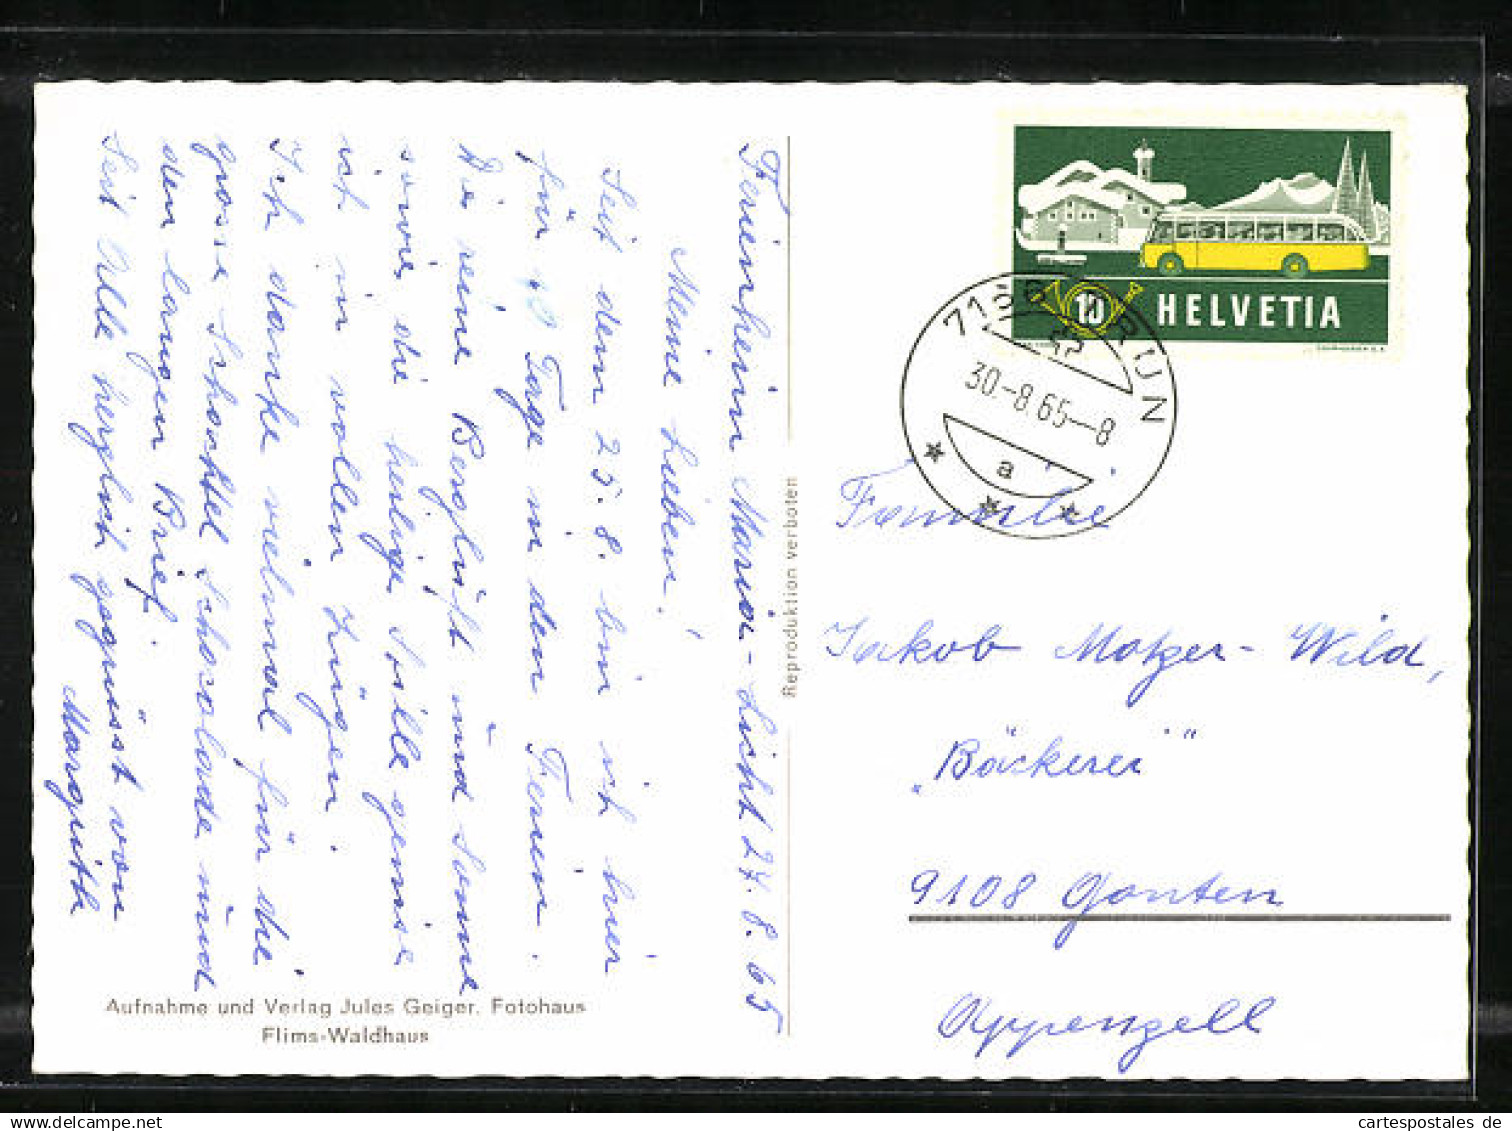 Ferienheim Maria-Licht 27.8.65
Meine Lieben!
Seit dem 25.8. bin ich hier
für 10 Tage in den Ferien.
Die reine Bergluft und Sonne
sowie die heilige Stille geniese
ich in vollen Zügen.
Ich danke vielmal für die
grosse Schachtel Schocolade und
den langen Brief.
Seit Alle herzlich gegrüsst von
Margrith
Aufnahme und Verlag Jules Geiger, Fotohaus
Flims-Waldhaus
Reproduktion verboten
10 HELVETIA
COURVOISIER S.A.
TRUN
30.-8.65--8
a
Familie
Jakob Motzer-Wild,
"Bäckerei"
9108 Gonten
Appenzell
cartespostales de